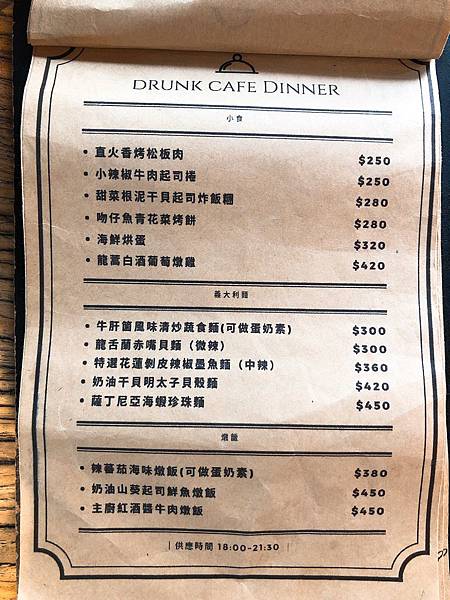 DRUNK CAFE DINNER
小食
• 直火香烤松板肉 $250
• 小辣椒牛肉起司捲 $250
• 甜菜根泥干貝起司炸飯糰 $280
• 吻仔魚青花菜烤餅 $280
• 海鮮烘蛋 $320
• 龍蒿白酒葡萄燉雞 $420
義大利麵
• 牛肝菌風味清炒蔬食麵(可做蛋奶素) $300
• 龍舌蘭赤嘴貝麵（微辣） $300
• 特選花蓮剝皮辣椒墨魚麵（中辣） $360
• 奶油干貝明太子貝殼麵 $420
• 薩丁尼亞海蝦珍珠麵 $450
燉飯
• 辣蕃茄海味燉飯(可做蛋奶素) $380
• 奶油山葵起司鮮魚燉飯 $450
• 主廚紅酒醬牛肉燉飯 $450
| 供應時間 18:00-21:30 |